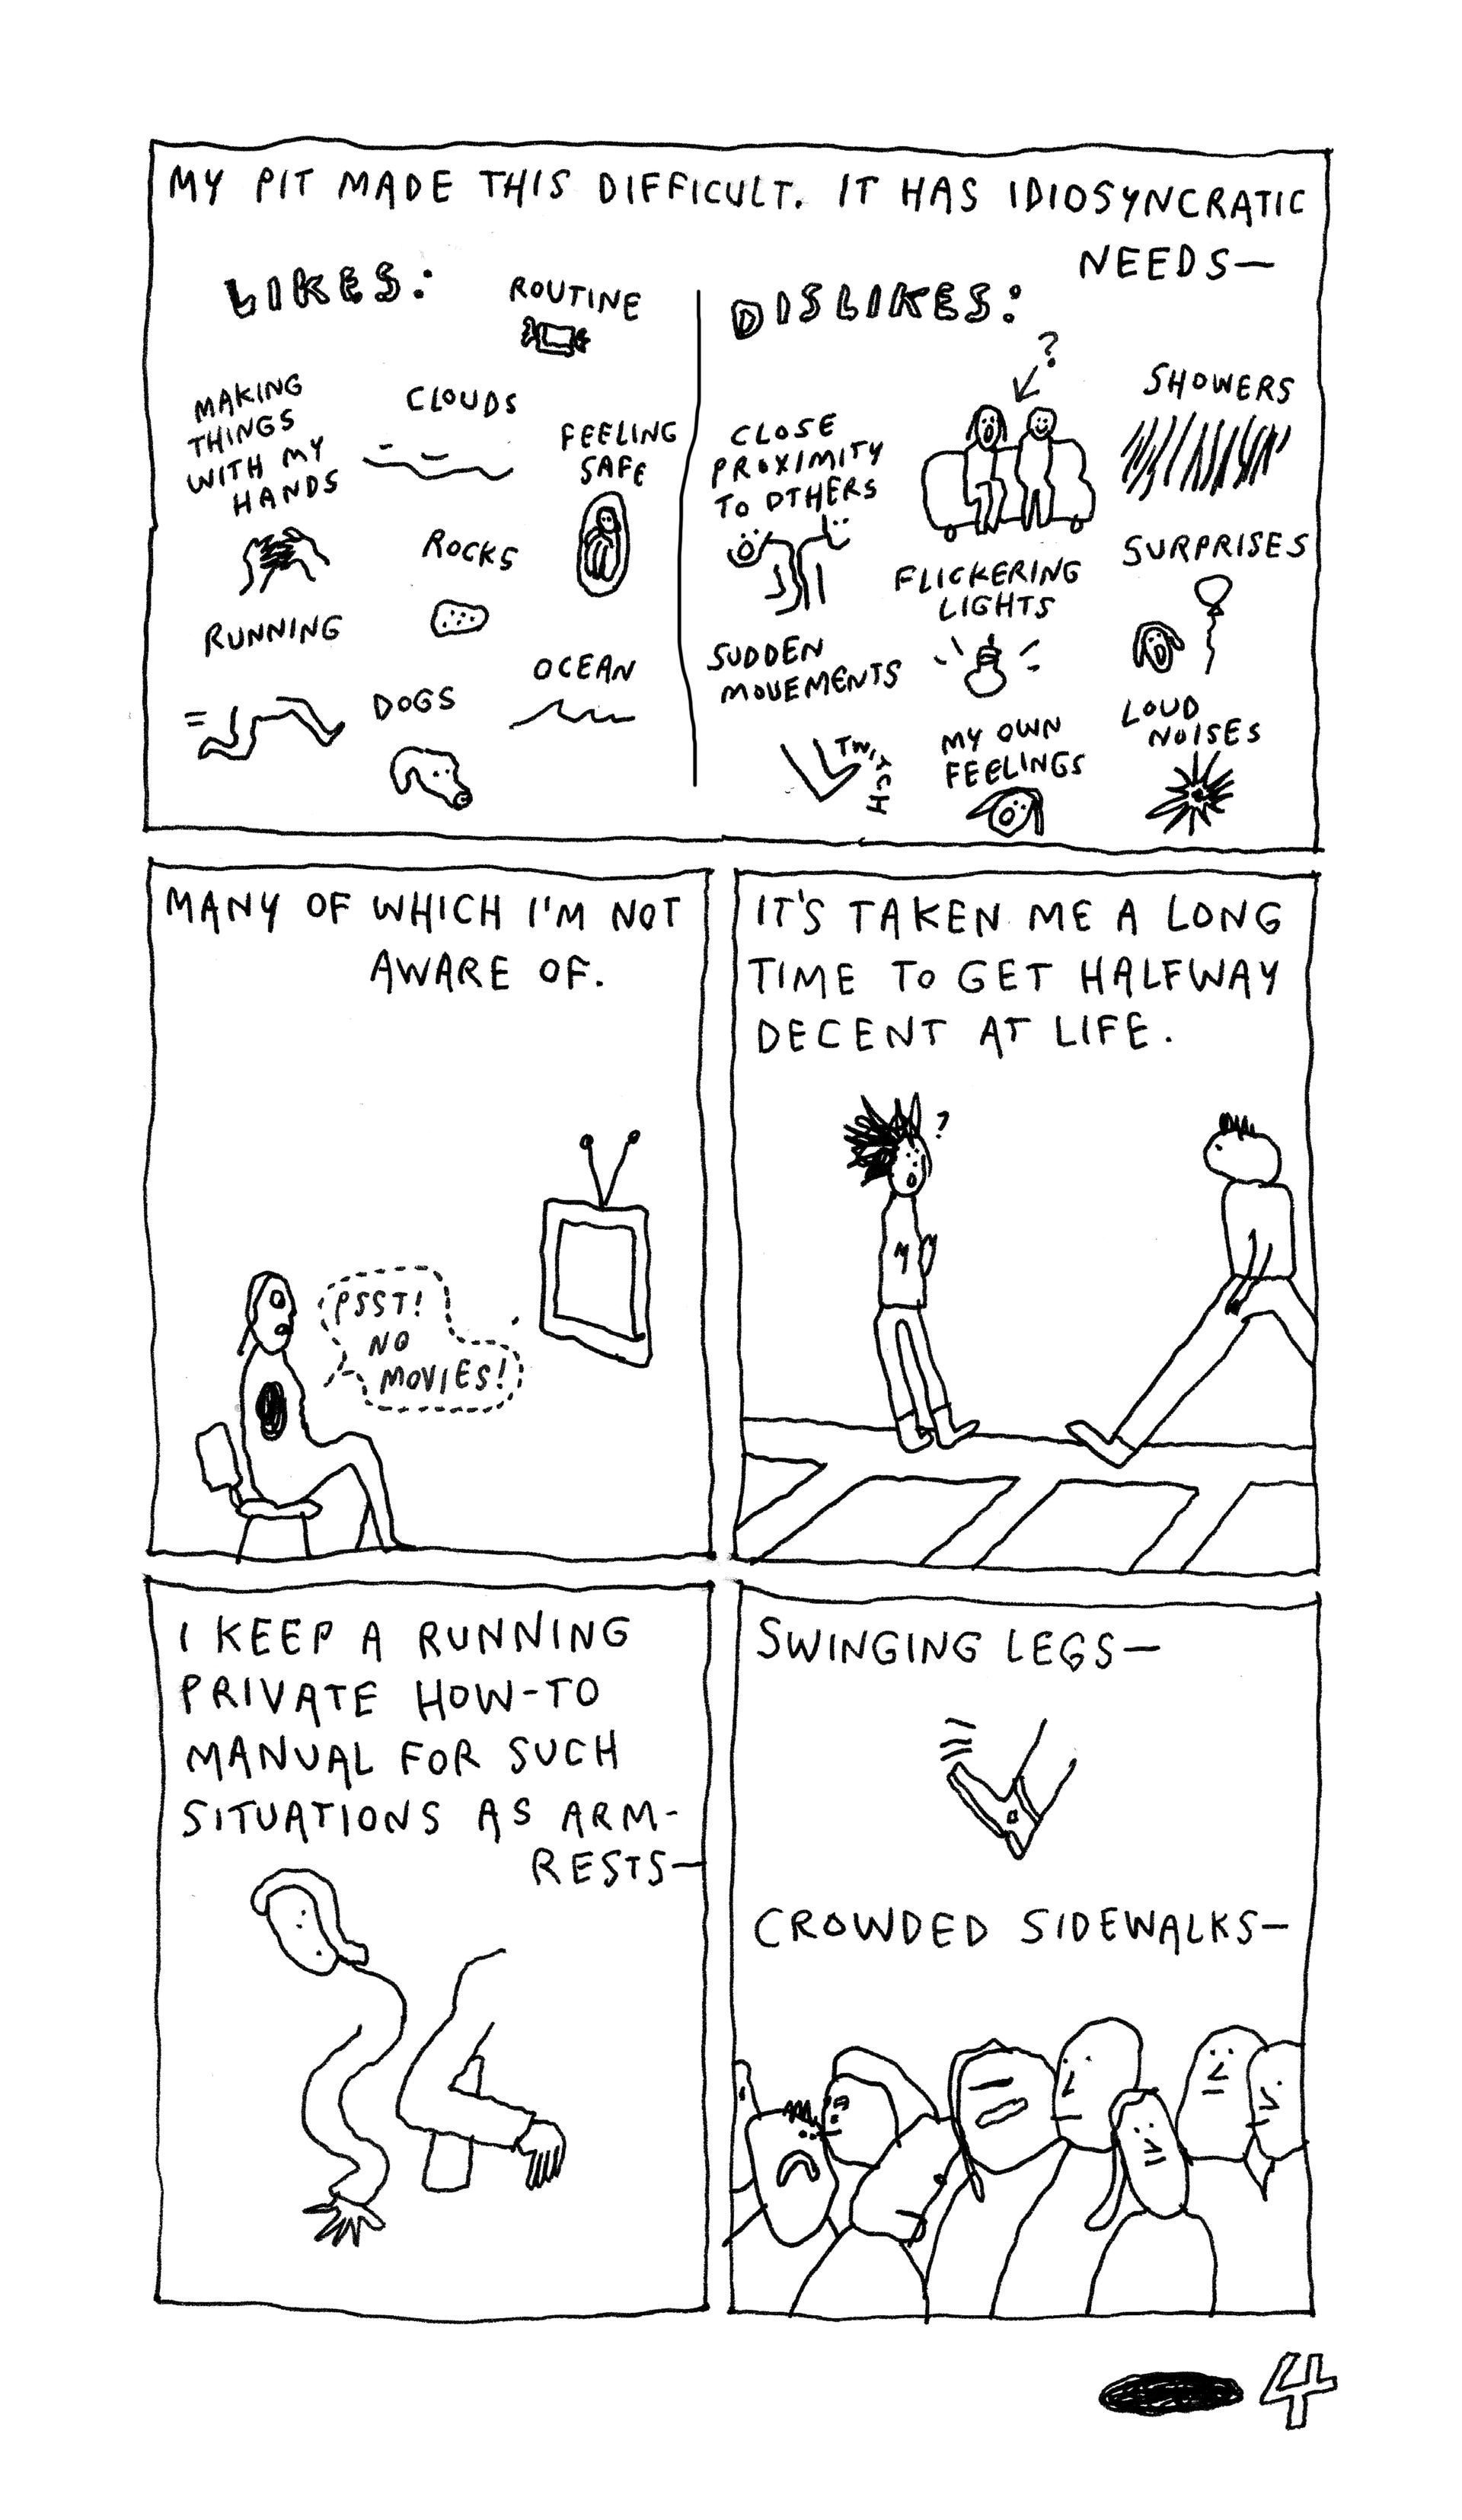 MY PIT MADE THIS DIFFICULT. IT HAS IDIOSYNCRATIC
NEEDS—
LIKES:
ROUTINE
MAKING
THINGS
WITH MY
HANDS
CLOUDS
FEELING
SAFE
ROCKS
RUNNING
DOGS
OCEAN
DISLIKES:
?
CLOSE
PROXIMITY
TO OTHERS
SHOWERS
FLICKERING
LIGHTS
SURPRISES
SUDDEN
MOVEMENTS
TWITCH
MY OWN
FEELINGS
LOUD
NOISES
MANY OF WHICH I'M NOT
AWARE OF.
PSST!
NO
MOVIES!
IT'S TAKEN ME A LONG
TIME TO GET HALFWAY
DECENT AT LIFE.
?
I KEEP A RUNNING
PRIVATE HOW-TO
MANUAL FOR SUCH
SITUATIONS AS ARM-
RESTS—
SWINGING LEGS—
CROWDED SIDEWALKS—
4